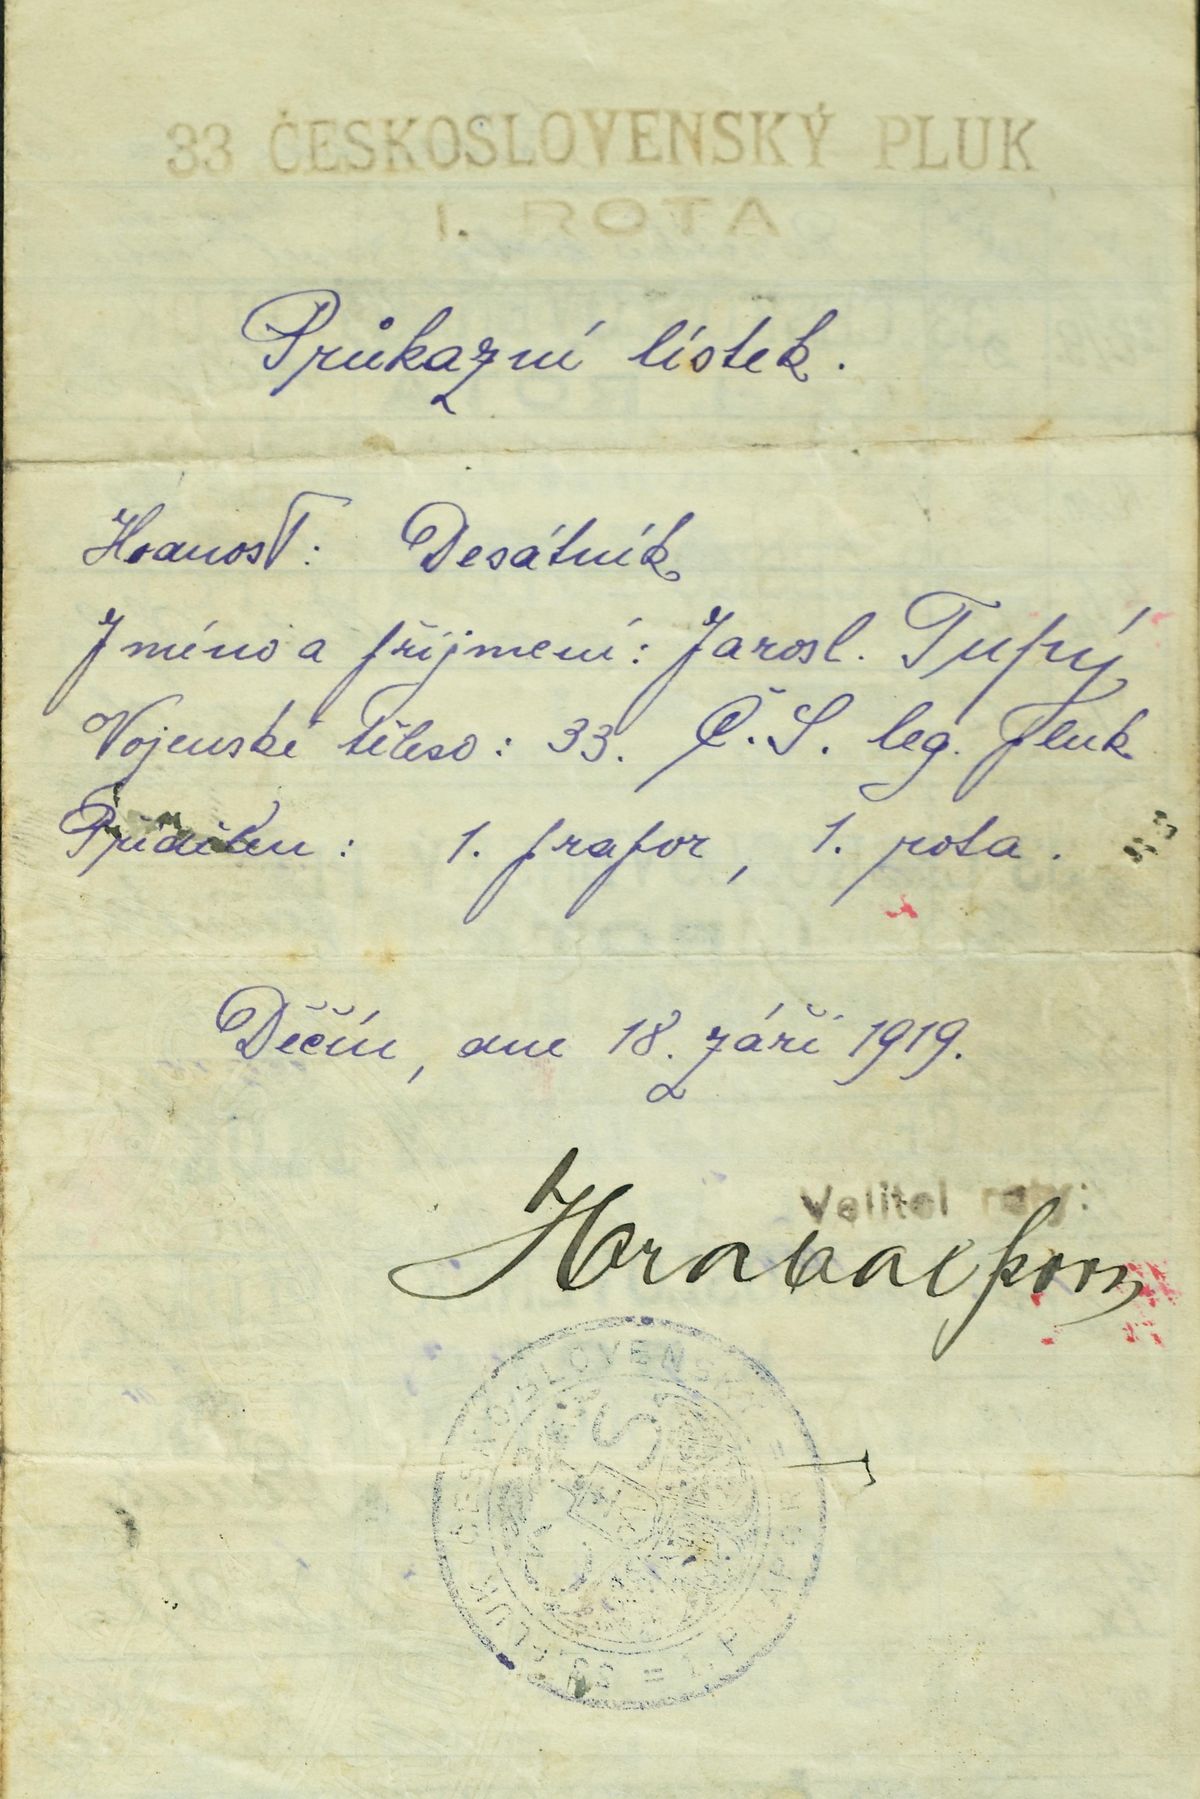 33 ČESKOSLOVENSKÝ PLUK
1. ROTA
Průkazní lístek.
Hodnosť: Desátník
Jméno a příjmení: Jarosl. Tupý
Vojenské těleso: 33. Č.S. leg. pluk
Přidělen: 1. prapor, 1. rota.
Děčín, dne 18. září 1919.
Velitel roty:
33 = PLUK ČESKOSLOVENSKÝ = 1. PRAPOR =
ČS